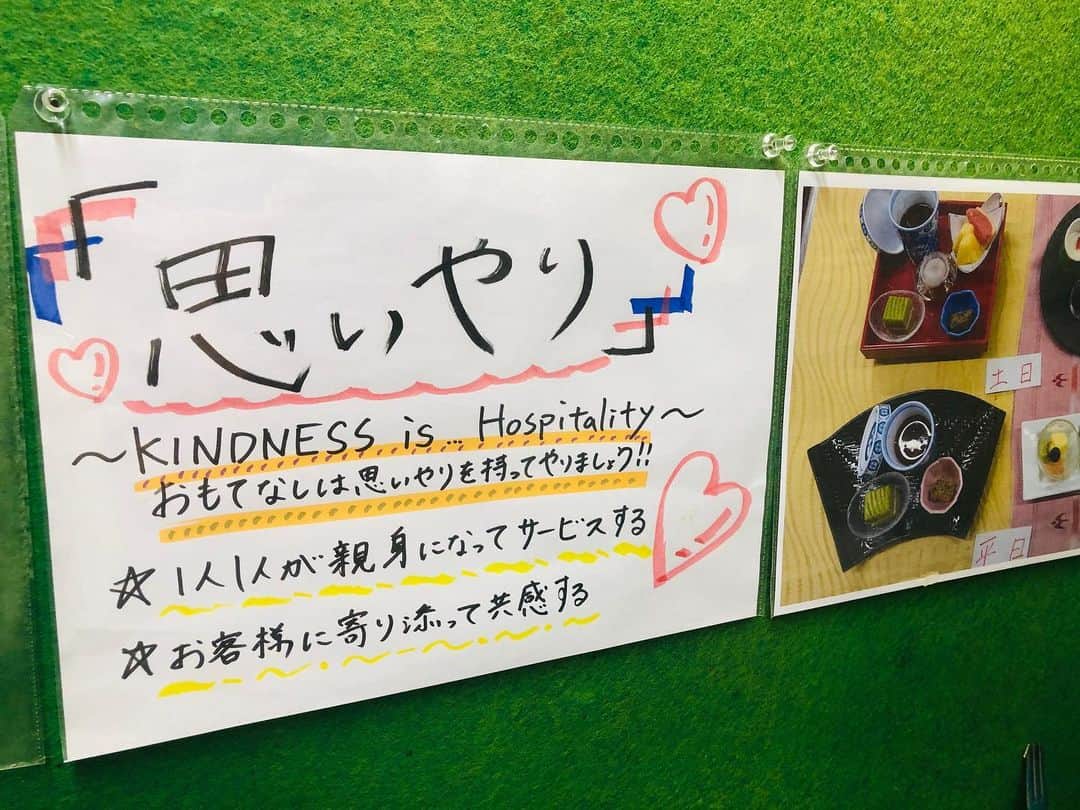 「思いやり」
～KINDNESS is... Hospitality～
おもてなしは思いやりを持ってやりましょう!!
☆1人1人が親身になってサービスする
☆お客様に寄り添って共感する
土日
平日